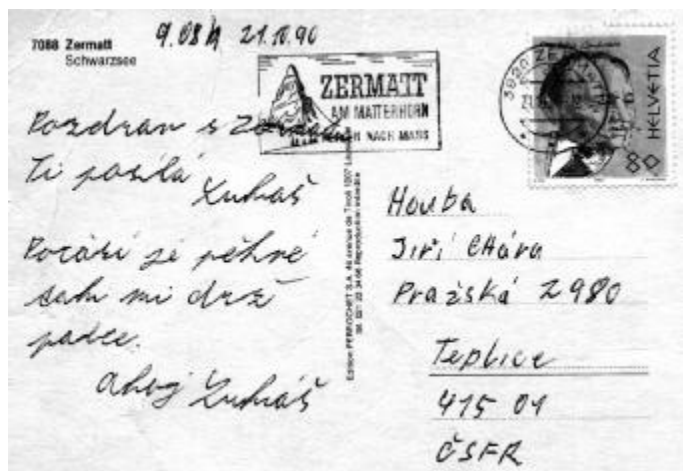 7088 Zermatt
Schwarzsee
9.08 h 21.10.90
ZERMATT
AM MATTERHORN
NACH MASS
3920 ZERMATT
HELVETIA
80
Pozdrav z
Ti posílá
Lukáš
Počasí je pěkné
tak mi drž
palce.
Ahoj Lukáš
Edition PERROCHET S.A. 46 avenue de Tivoli 1007
Reproduction interdite
Houba
Jiří CHára
Pražská 2980
Teplice
415 01
ČSFR